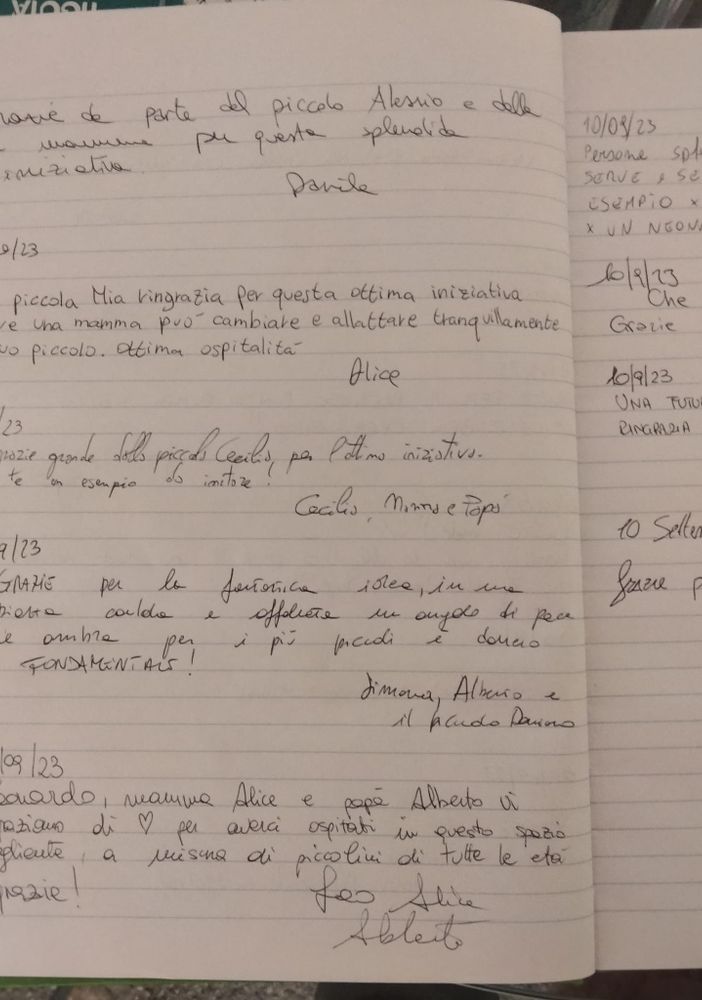 de parte del piccolo Alessio e della
mamma per questa splendida
iniziativa.
Danila
9/23
piccola Mia ringrazia per questa ottima iniziativa
ve una mamma può cambiare e allattare tranquillamente
uo piccolo. Ottima ospitalità
Alice
/23
grande dalla piccola Cecilia, per l'ottima iniziativa.
te un esempio da imitare!
Cecilia, Mamma e Papà
9/23
GRAZIE per la fantastica idea, in una
calda e affollata un angolo di pace
e ombra per i più piccoli è davvero
FONDAMENTALE!
Simona, Alberto e
il piccolo
/09/23
onardo, mamma Alice e papà Alberto vi
raziano di ♡ per averci ospitati in questo spazio
gliente, a misura di piccolini di tutte le età
grazie!
Leo Alice
Alberto
10/09/23
Persone spl
SERVE
ESEMPIO x
x UN NEONA
10/9/23
Che
Grazie
10/9/23
UNA FUTU
RINGRAZIA
10 Settem
Grazie p